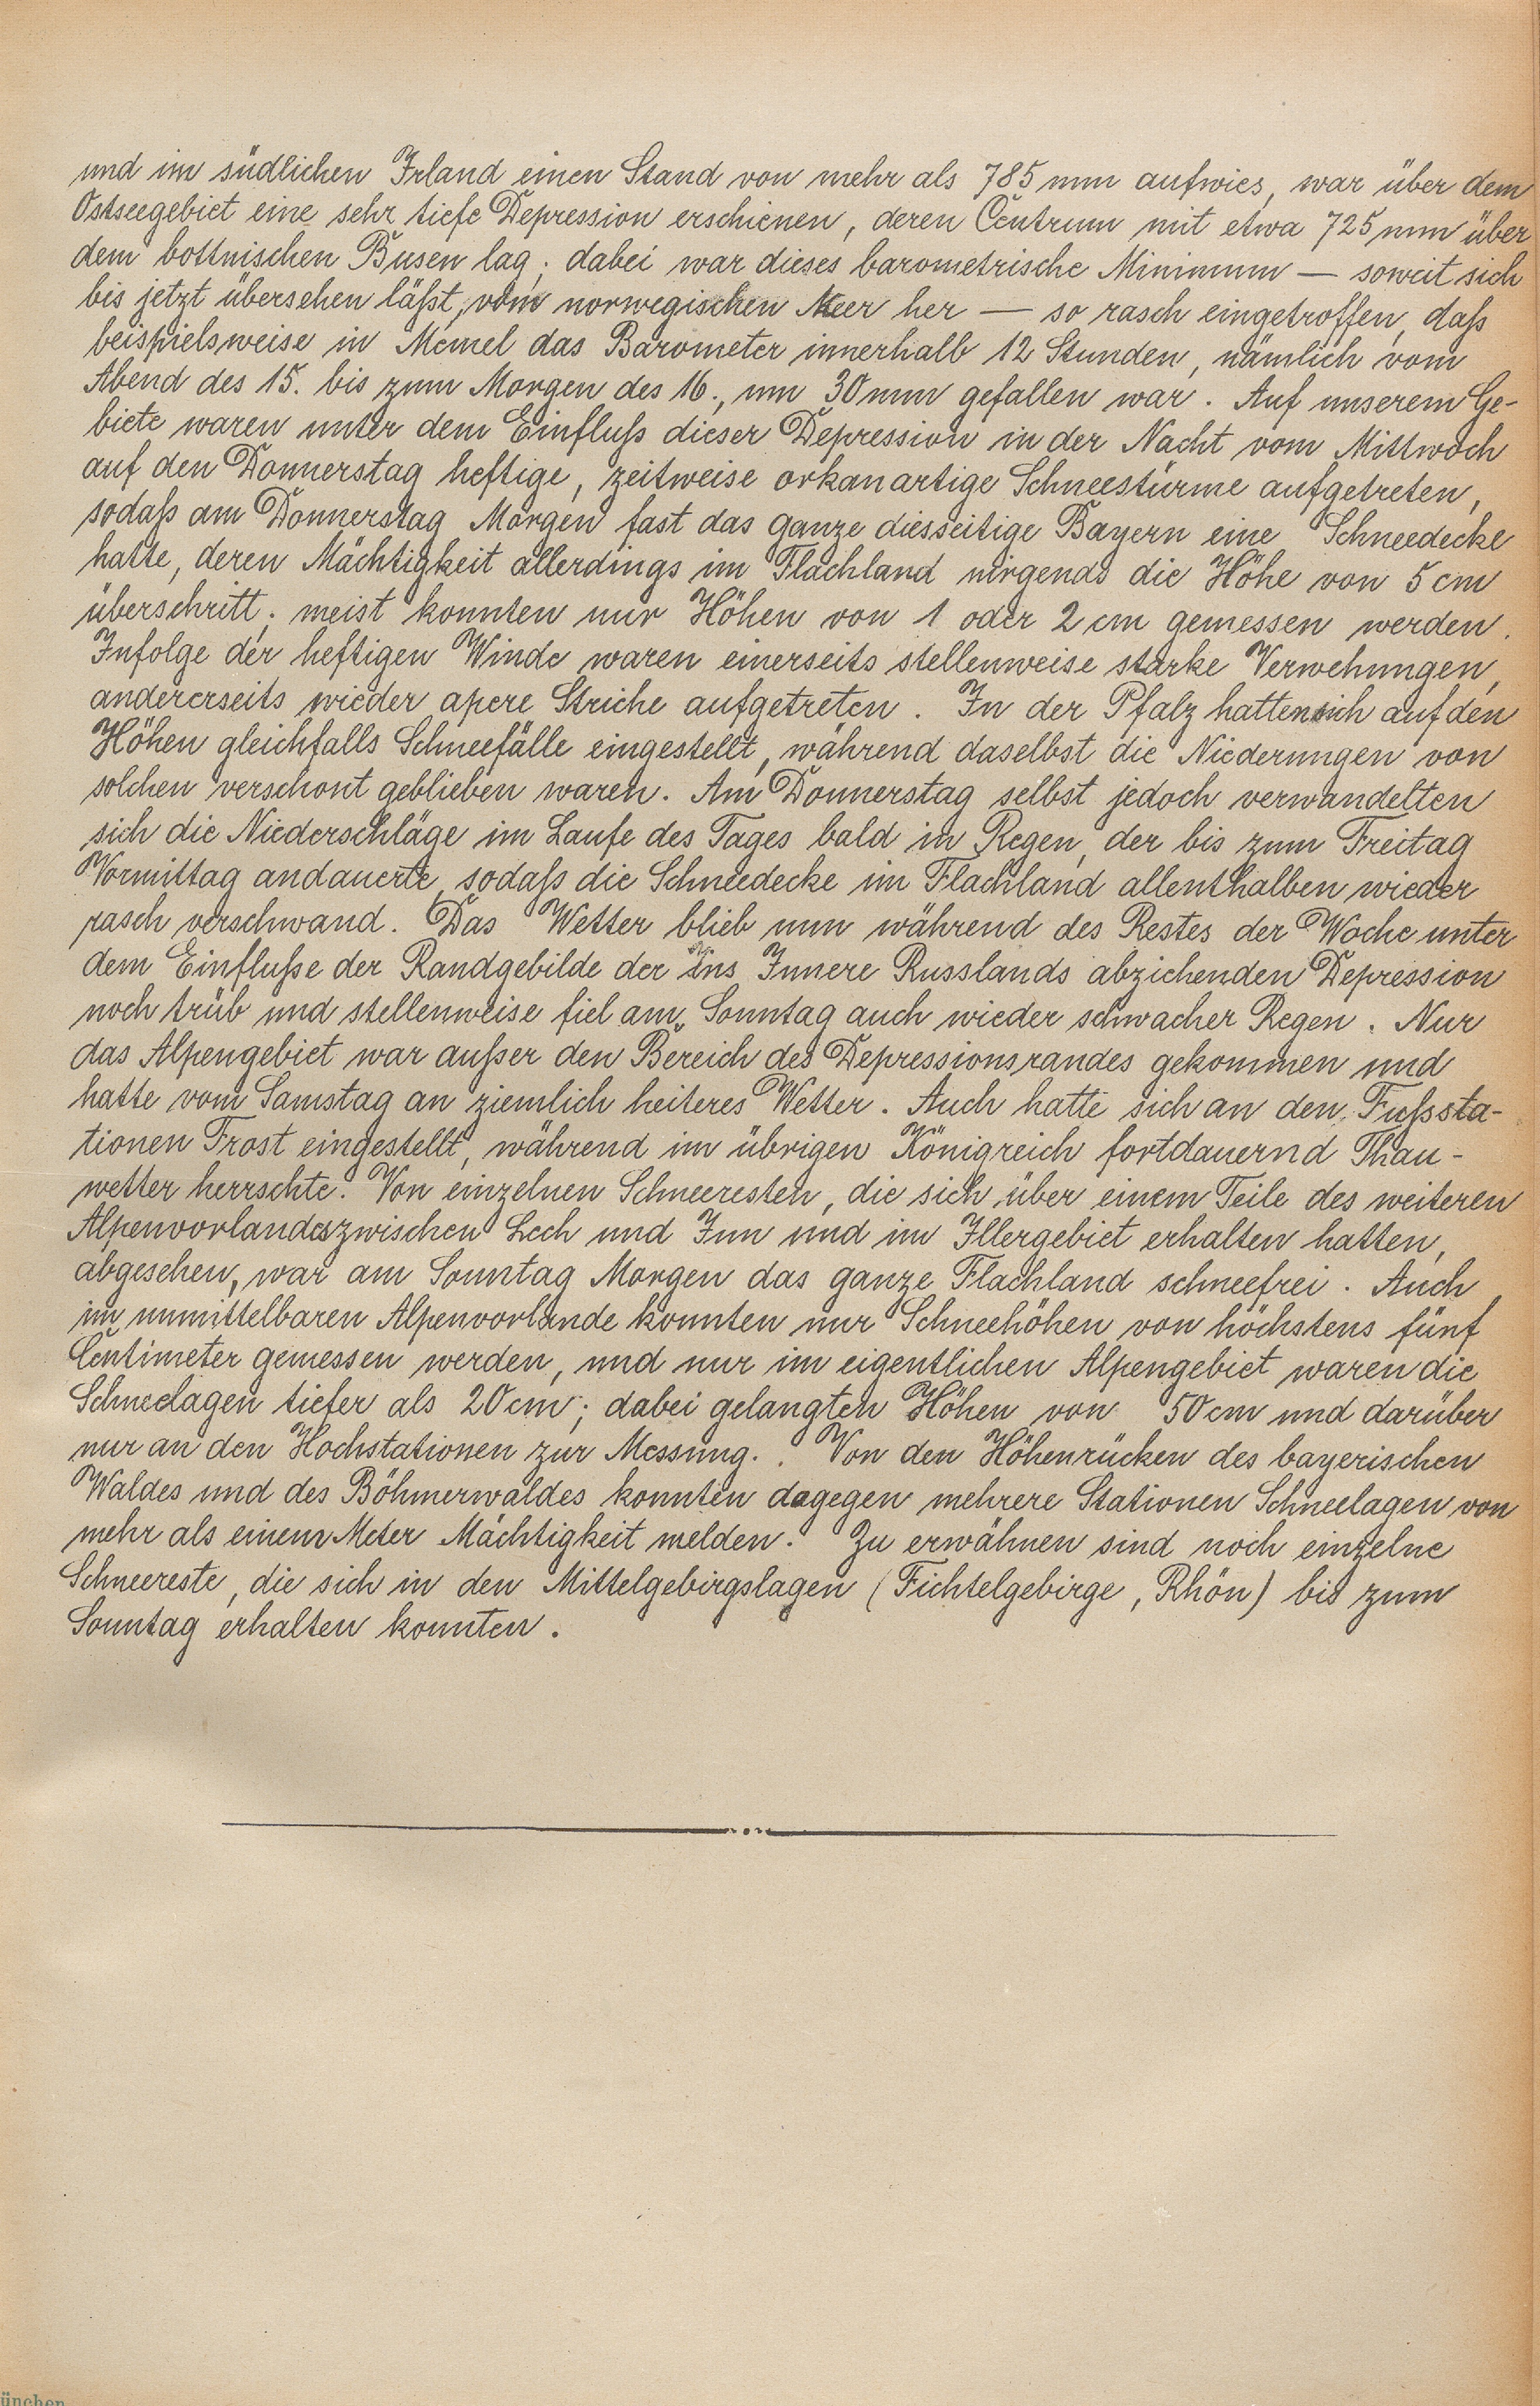 und im südlichen Irland einen Stand von mehr als 785 mm aufwies, war über dem
Ostseegebiet eine sehr tiefe Depression erschienen, deren Centrum mit etwa 725 mm über
dem bottnischen Busen lag; dabei war dieses barometrische Minimum — soweit sich
bis jetzt übersehen läßt, vom norwegischen Meer her — so rasch eingetroffen, daß
beispielsweise in Memel das Barometer innerhalb 12 Stunden, nämlich vom
Abend des 15. bis zum Morgen des 16., um 30 mm gefallen war. Auf unserem Ge-
biete waren unter dem Einfluß dieser Depression in der Nacht vom Mittwoch
auf den Donnerstag heftige, zeitweise orkanartige Schneestürme aufgetreten,
sodaß am Donnerstag Morgen fast das ganze diesseitige Bayern eine Schneedecke
hatte, deren Mächtigkeit allerdings im Flachland nirgends die Höhe von 5 cm
überschritt; meist konnten nur Höhen von 1 oder 2 cm gemessen werden.
Infolge der heftigen Winde waren einerseits stellenweise starke Verwehungen,
andererseits wieder apere Striche aufgetreten. In der Pfalz hatten sich auf den
Höhen gleichfalls Schneefälle eingestellt, während daselbst die Niederungen von
solchen verschont geblieben waren. Am Donnerstag selbst jedoch verwandelten
sich die Niederschläge im Laufe des Tages bald in Regen, der bis zum Freitag
Vormittag andauerte, sodaß die Schneedecke im Flachland allenthalben wieder
rasch verschwand. Das Wetter blieb nun während des Restes der Woche unter
dem Einfluße der Randgebilde der ins Innere Russlands abziehenden Depression
noch trüb und stellenweise fiel am Sonntag auch wieder schwacher Regen. Nur
das Alpengebiet war außer den Bereich des Depressionsrandes gekommen und
hatte vom Samstag an ziemlich heiteres Wetter. Auch hatte sich an den Fußsta-
tionen Frost eingestellt, während im übrigen Königreich fortdauernd Thau-
wetter herrschte. Von einzelnen Schneeresten, die sich über einem Teile des weiteren
Alpenvorlandes zwischen Lech und Inn und im Illergebiet erhalten hatten,
abgesehen, war am Sonntag Morgen das ganze Flachland schneefrei. Auch
im unmittelbaren Alpenvorlande konnten nur Schneehöhen von höchstens fünf
Centimeter gemessen werden, und nur im eigentlichen Alpengebiet waren die
Schneelagen tiefer als 20 cm; dabei gelangten Höhen von 50 cm und darüber
nur an den Hochstationen zur Messung. . Von den Höhenrücken des bayerischen
Waldes und des Böhmerwaldes konnten dagegen mehrere Stationen Schneelagen von
mehr als einem Meter Mächtigkeit melden. Zu erwähnen sind noch einzelne
Schneereste, die sich in den Mittelgebirgslagen (Fichtelgebirge, Rhön) bis zum
Sonntag erhalten konnten.
ünchen